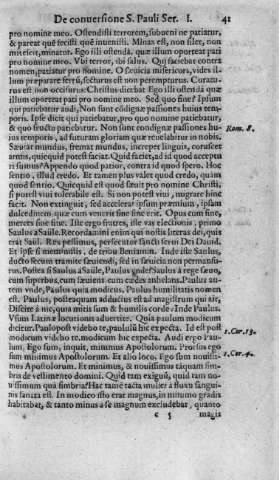 De conuersione S. Pauli Ser. I. 41
pro nomine meo. Ostendisti terrorem, subueni ne patiatur,
& pareat quē fecisti quē inuenisti. Minas est, non silet, non
mitescit, minatur. Ego illi ostendā, quæ illum oporteat pati
pro nomine meo. Vbi terror, ibi salus. Qui faciebat contra
nomen, patiatur pro nomine. O sæuitia misericors, vides il-
lum præparare ferrū, secturus est non perempturus. Curatu-
rus est non occisurus. Christus dicebat Ego illi ostendā quæ
illum oporteat pati pro nomine meo. Sed quo fine? Ipsum
qui patiebatur audi, Non sunt condignæ passiones huius tem-
poris. Ipse dicit qui patiebatur, pro quo nomine patiebatur,
& quo fructu patiebatur. Non sunt condignæ passiones hu-
ius temporis, ad futuram gloriam quæ reuelabitur in nobis. Rom. 8.
Sæuiat mundus, fremat mundus, increpet linguis, coruscet
armis, quicquid potest faciat. Quid faciet, ad id quod accepturi
sumus? Appendo quod patior, contra id quod spero. Hoc
sentio, illud credo. Et tamen plus valet quod credo, quam
quod sentio. Quicquid est quod sæuit pro nomine Christi,
si potest viui tolerabile est. Si non potest viui, migrare hinc
facit. Non extinguit, sed accelerat ipsum præmium, ipsam
dulcedinem quæ cum venerit sine fine erit. Opus cum fine,
merces sine fine. Iste ergo fratres, iste vas electionis, primo
Saulus à Saüle. Recordamini enim qui nostis literas dei, quis
erat Saül. Rex pessimus, persecutor sancti serui Dei Dauid.
Et ipse si meministis, de tribu Beniamin. Inde iste Saulus,
docto secum tramite sæuiendi, sed in sæuitia non permansu-
rus. Postea si Saulus à Saüle, Paulus vnde? Saulus à rege sæuo,
cum superbus, cum sæuiens, cum cædes anhelans. Paulus au-
tem vnde, Paulus quia modicus. Paulus humilitatis nomen
est. Paulus, posteaquam adductus est ad magistrum qui ait,
Discite à me, quia mitis sum & humilis corde. Inde Paulus.
Vsum Latinæ locutionis aduertite. Quia paulum modicum
dicitur. Paulo post videbo te, paululū hic expecta. Id est post
modicum videbo te. modicum hic expecta. Audi ergo Pau- 1. Cor. 15.
lum, Ego sum, inquit, minimus Apostolorum. Prorsus ego
sum minimus Apostolorum. Et alio loco. Ego sum nouissi- 1. Cor. 4.
mus Apostolorum. Et minimus, & nouissimus tāquam fim-
bria de vestimento domini. Quid tam exiguū, quid tam no-
uissimum quā fimbria? Hac tamē tacta mulier à fluxu sangui-
nis sanata est. In modico isto erat magnus, in minimo grādis
habitabat, & tanto minus à se magnum excludebat, quanto
c 5 magis